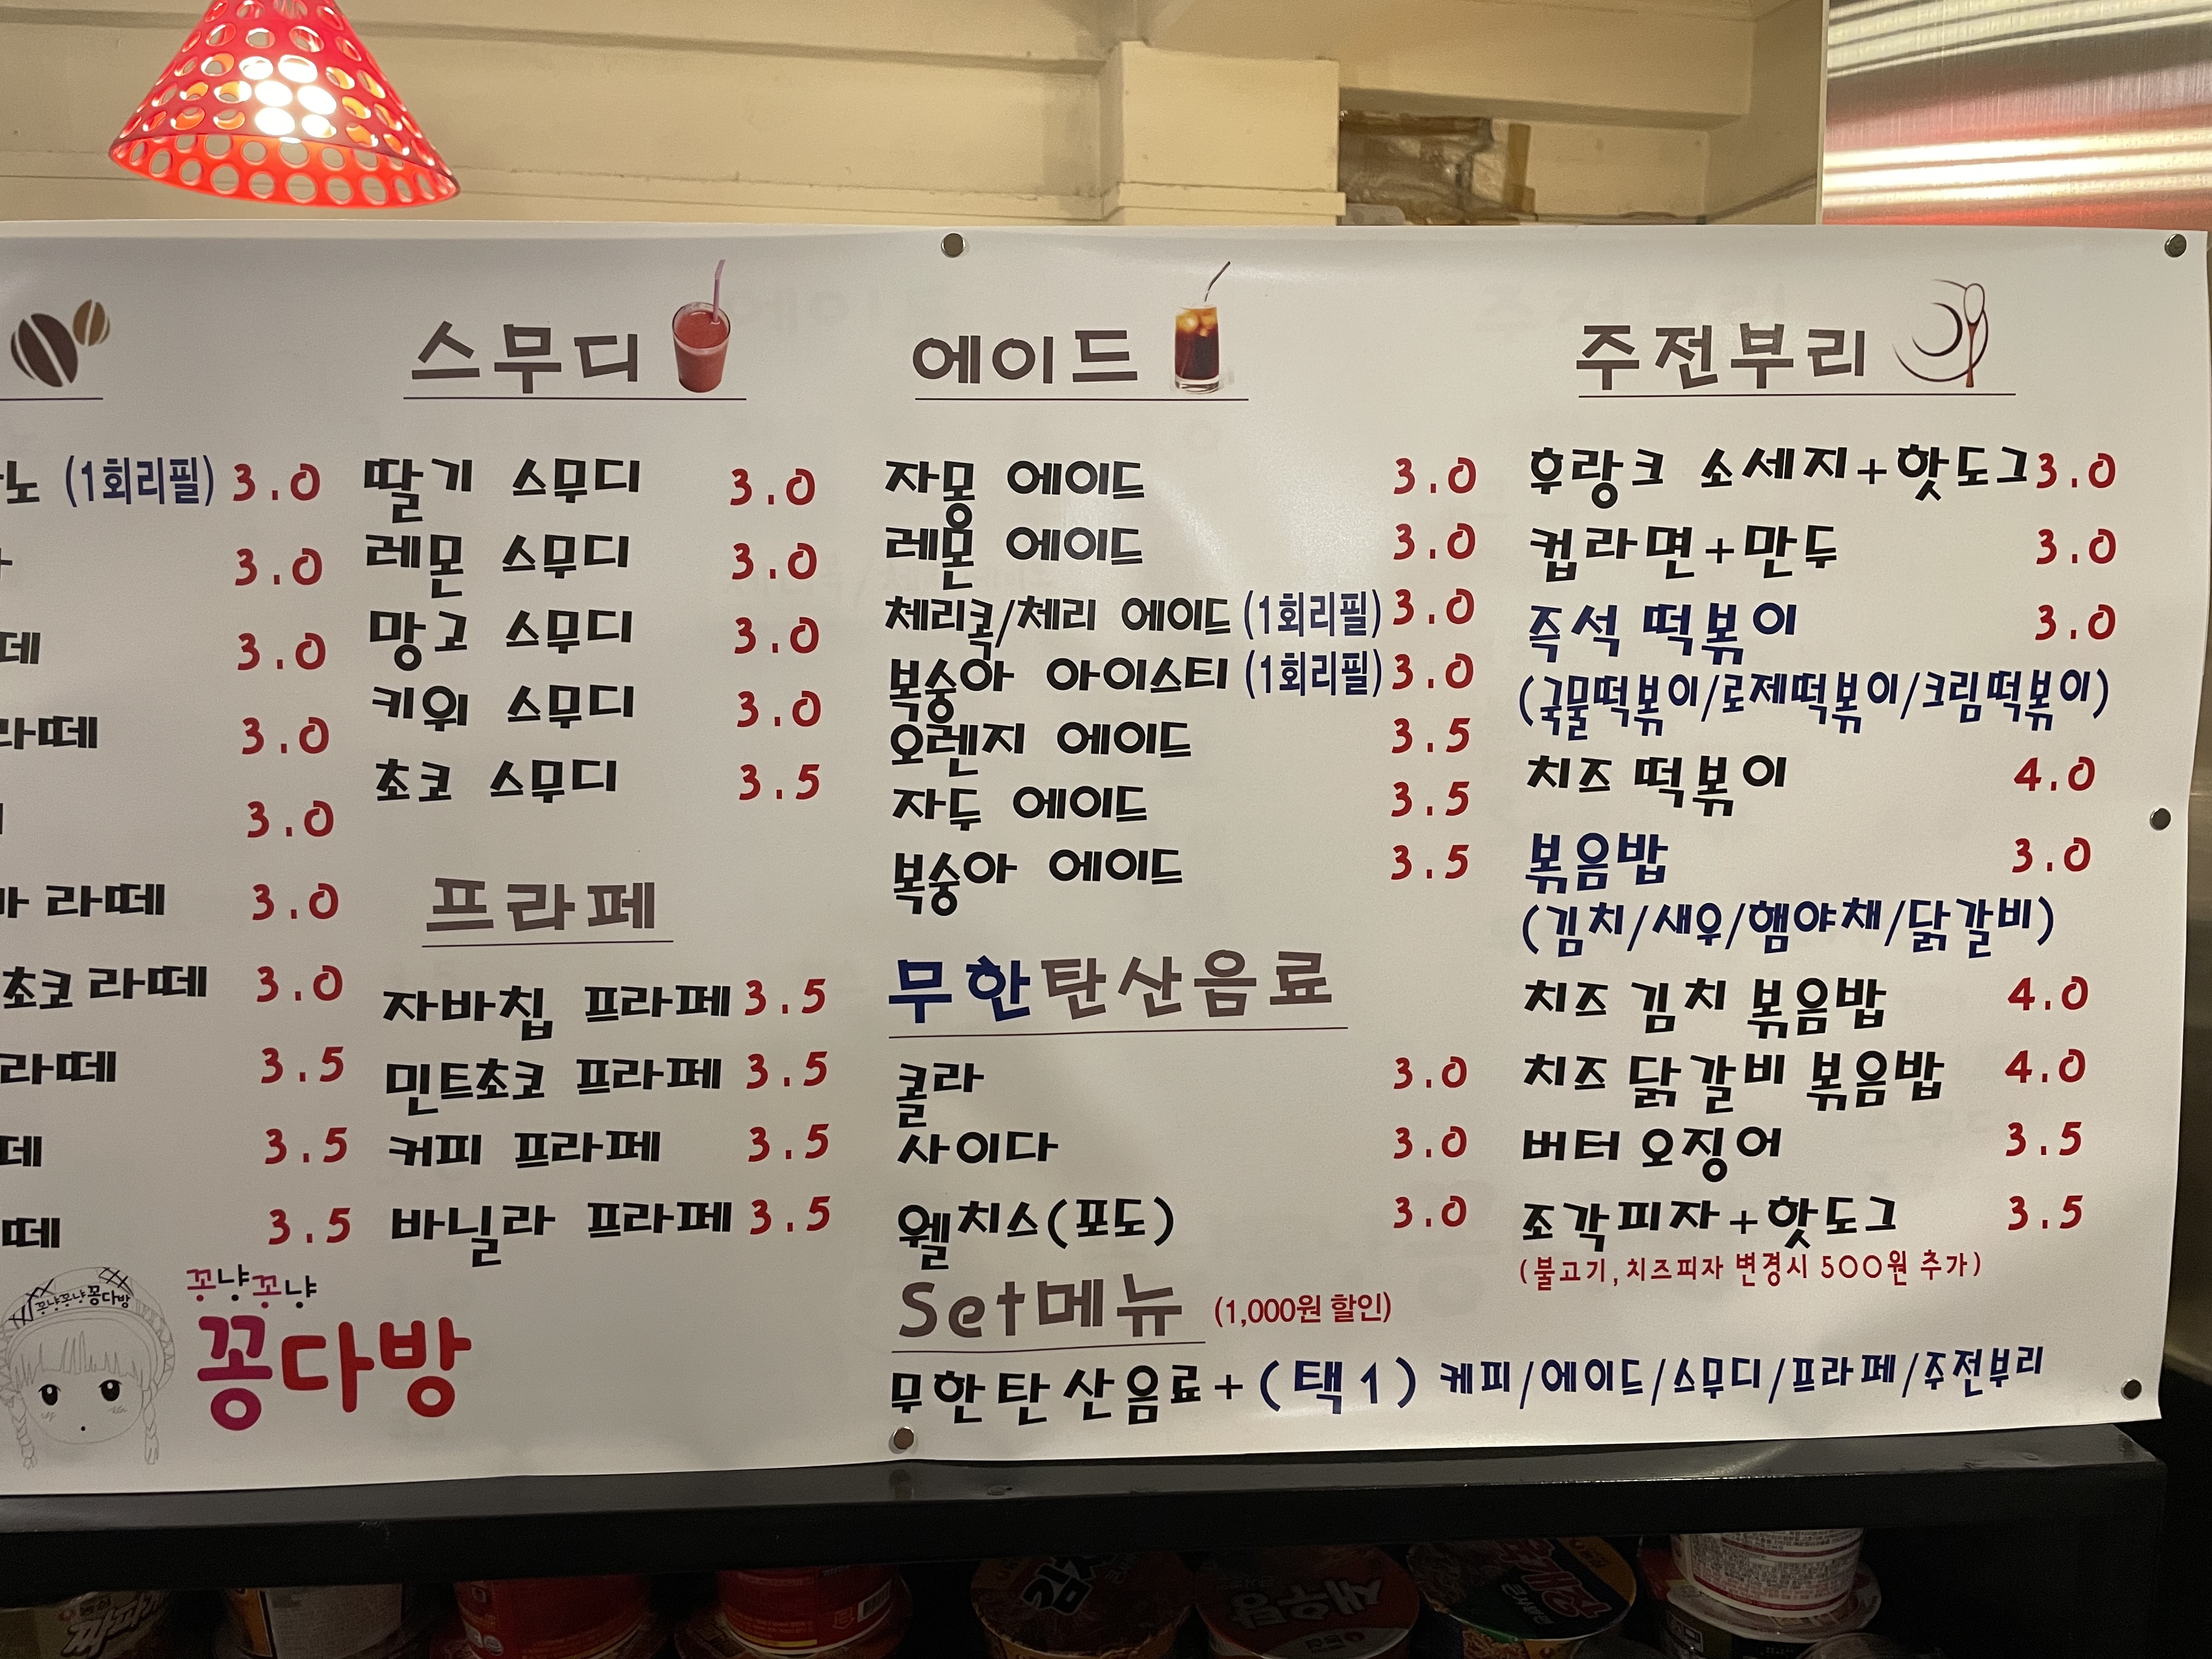 노 (1회리필) 3.0
3.0
데 3.0
라떼 3.0
3.0
라떼 3.0
초코 라떼 3.0
라떼 3.5
데 3.5
떼 3.5
꼬냥꼬냥꽁다방
꼬냥꼬냥
꽁다방
스무디
딸기 스무디 3.0
레몬 스무디 3.0
망고 스무디 3.0
키위 스무디 3.0
초코 스무디 3.5
프라페
자바칩 프라페 3.5
민트초코 프라페 3.5
커피 프라페 3.5
바닐라 프라페 3.5
에이드
자몽 에이드 3.0
레몬 에이드 3.0
체리콕/체리 에이드 (1회리필) 3.0
복숭아 아이스티 (1회리필) 3.0
오렌지 에이드 3.5
자두 에이드 3.5
복숭아 에이드 3.5
무한탄산음료
콜라 3.0
사이다 3.0
웰치스(포도) 3.0
Set메뉴 (1,000원 할인)
무한탄산음료+(택1) 케피/에이드/스무디/프라페/주전부리
주전부리
후랑크 소세지+핫도그 3.0
컵라면+만두 3.0
즉석 떡볶이 3.0
(국물떡볶이/로제떡볶이/크림떡볶이)
치즈 떡볶이 4.0
볶음밥 3.0
(김치/새우/햄야채/닭갈비)
치즈 김치 볶음밥 4.0
치즈 닭갈비 볶음밥 4.0
버터 오징어 3.5
조각피자+핫도그 3.5
(불고기,치즈피자 변경시 500원 추가)